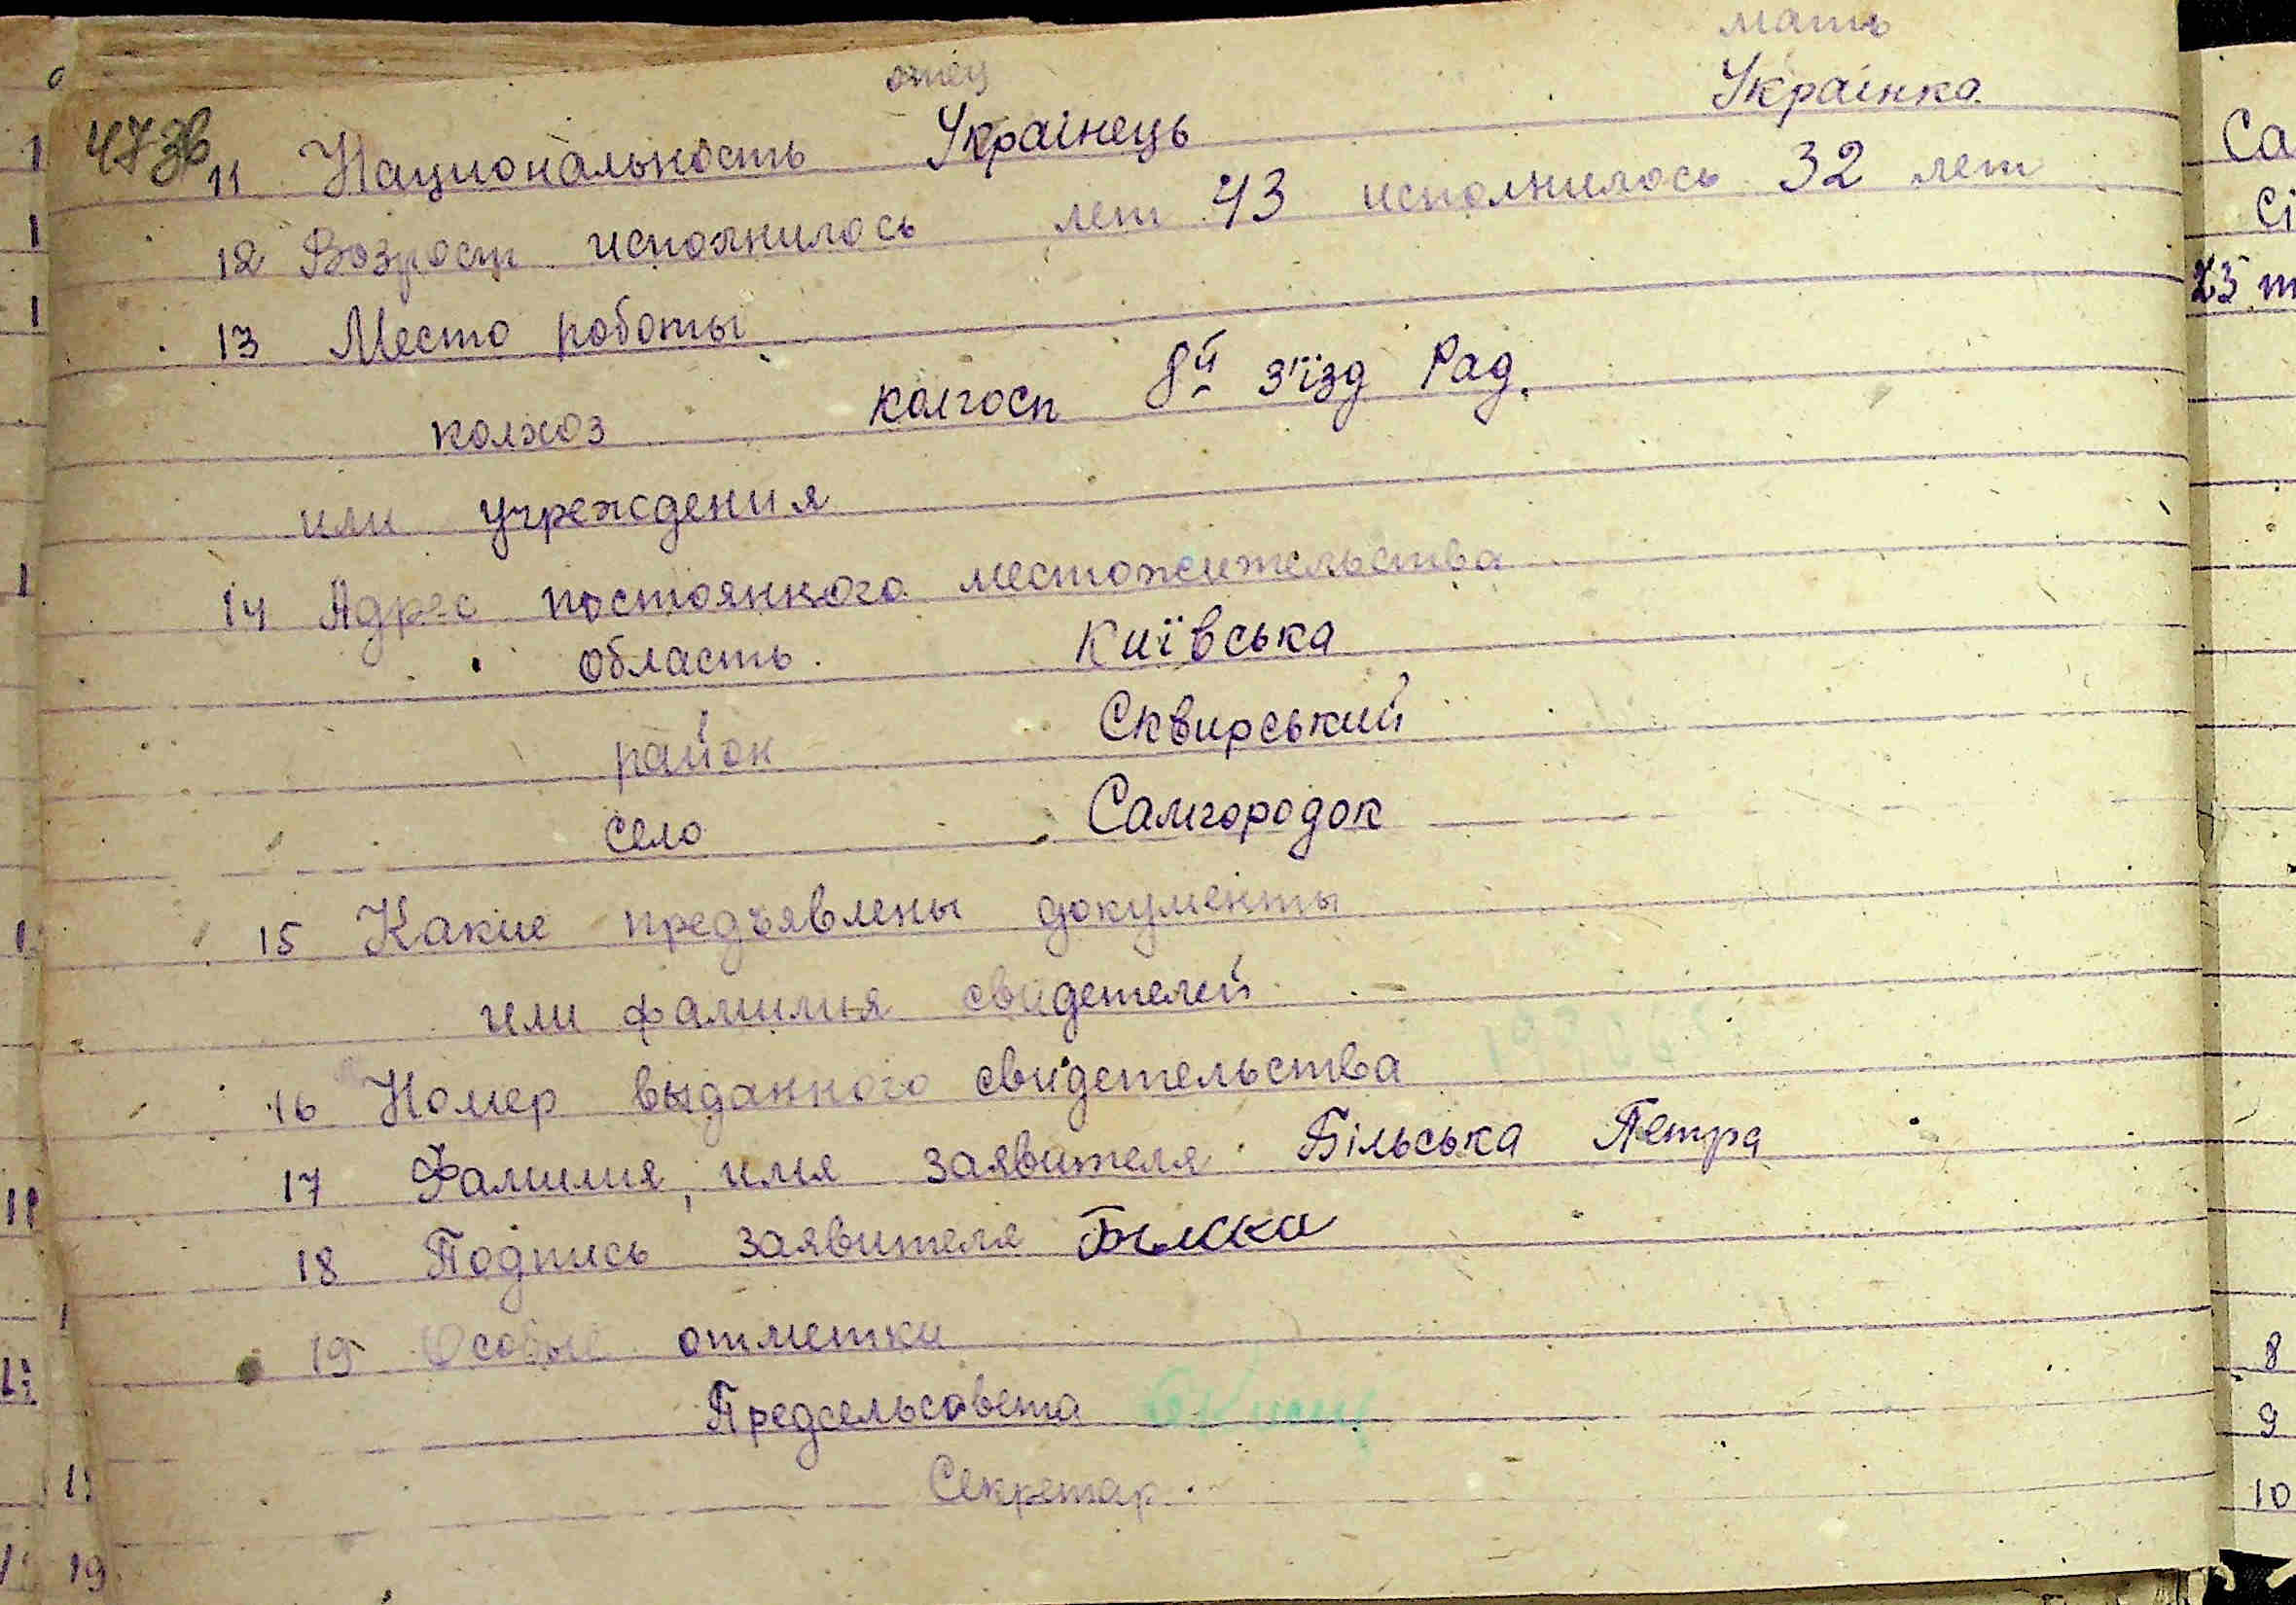 отец мать
473в
11 Национальность Украінець Украінка
12 Возраст исполнилось лет 43 исполнилось 32 лет
13 Место роботы
колхоз колгосп 8й з'їзд Рад.
или учреждения
14 Адрес постоянного местожительства
область. Київська
район Сквирський
село Самгородок
15 Какие предъявлены документы
или фамилия свидетелей
16 Номер выданного свидетельства
17 Фамилия, имя заявителя Більська Петра
18 Подпись заявителя Бельска
19 Особые отметки
Предсельсовета
Секретар.
Са
сі
23 т
8
9
10
19